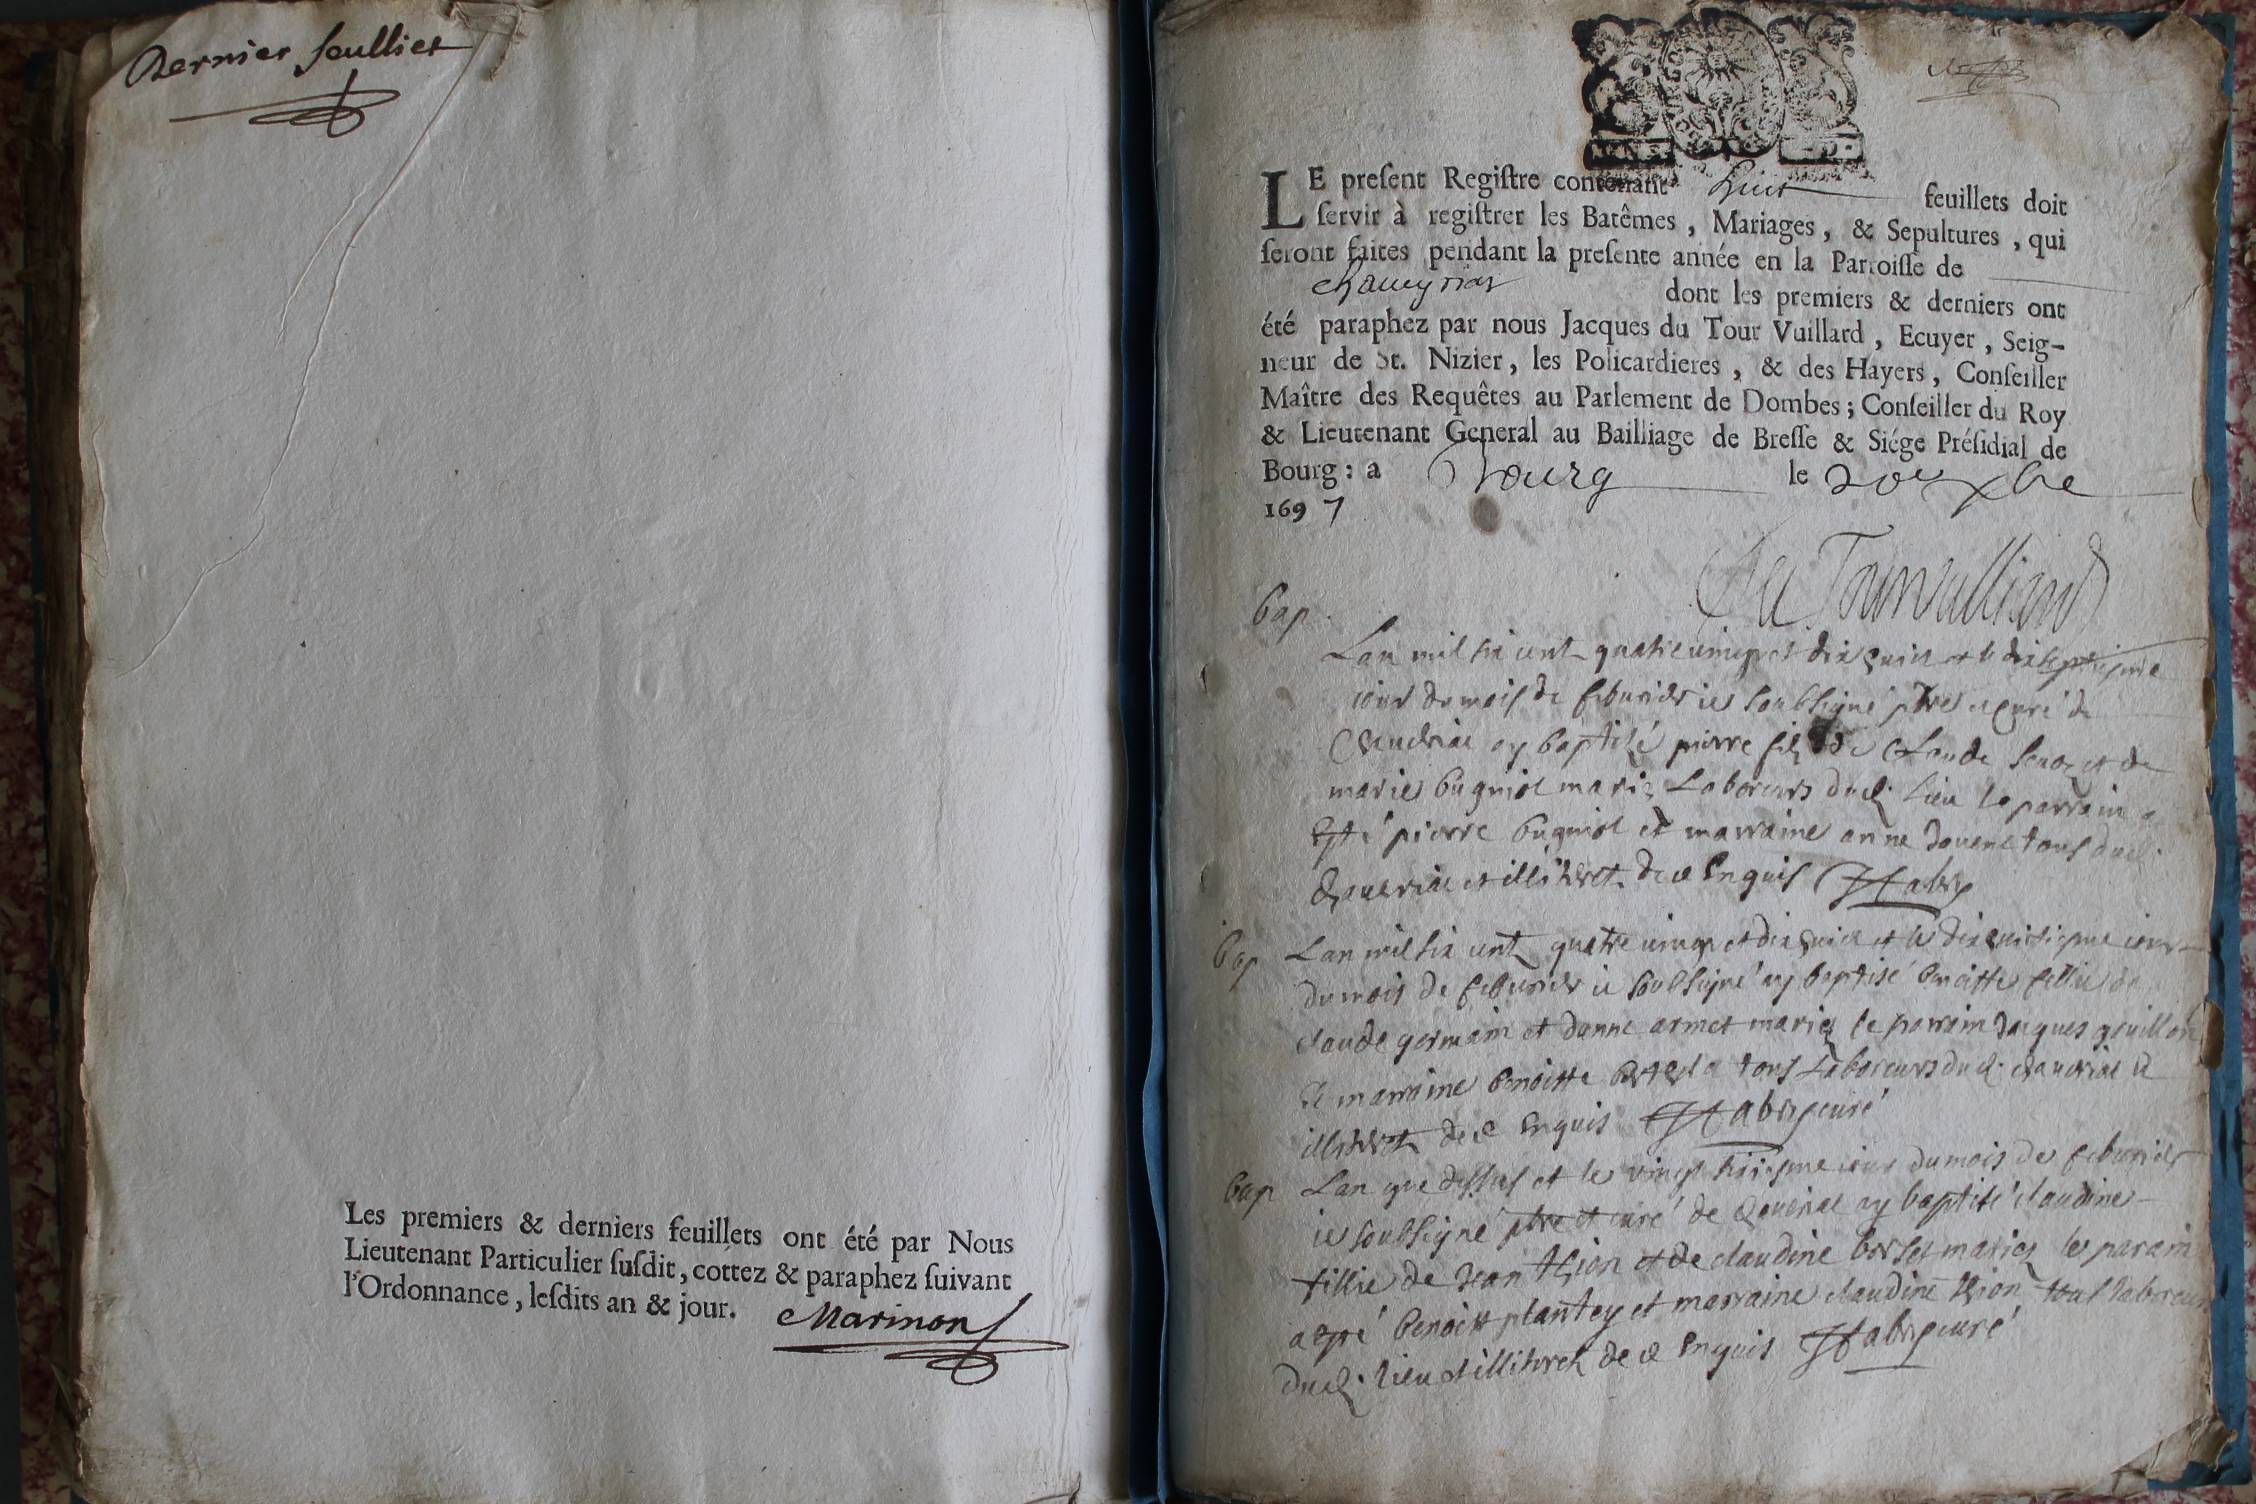 Dernier feulliet
Les premiers & derniers feuillets ont été par Nous
Lieutenant Particulier ſuſdit, cottez & paraphez ſuivant
l'Ordonnance, leſdits an & jour. Marinon
LE preſent Regiſtre contenant huict feuillets doit
ſervir à regiſtrer les Batêmes, Mariages, & Sepultures, qui
ſeront faites pendant la preſente année en la Parroiſſe de
chaveyriat dont les premiers & derniers ont
été paraphez par nous Jacques du Tour Vuillard, Ecuyer, Seig-
neur de St. Nizier, les Policardieres, & des Hayers, Conſeiller
Maître des Requêtes au Parlement de Dombes; Conſeiller du Roy
& Lieutenant General au Bailliage de Breſſe & Siége Préſidial de
Bourg: a Bourg le 20e xbre
1697
Du Tourvulliard
bap
Lan mil six cent quatre vingt et dix huict et le dixseptiesme
iour du mois de feburier ie soubsigné ptre et curé de
ay baptisé pierre filz de Claude et de
marie bugniot mariez Laboreurs dud. lieu le parrain a
esté pierre bugniot et marraine anne tous dud.
et illiterez de ce enquis
bap Lan mil six cent quatre vingt et dix huict et le dix huictiesme iour
du mois de feburier ie soubsigné ay baptisé benoitte fillie de
claude germain et danne armet mariez le parrain Jacques gouillon
et marraine benoitte tous Laboreurs dud. et
illiterez de ce enquis curé
bap Lan que dessus et le vingt sixiesme iour du mois de feburier
ie soubsigné ptre et curé de ay baptisé claudine
fillie de Jean thion et de claudine mariez le parain
a esté benoist plantey et marraine claudine thion tous laboreurs
dud. lieu et illiterez de ce enquis curé